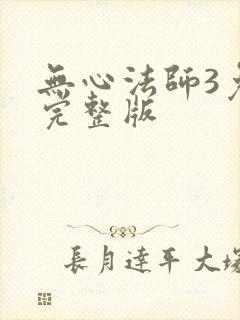 無心法師3
完整版
長月達平 大塚